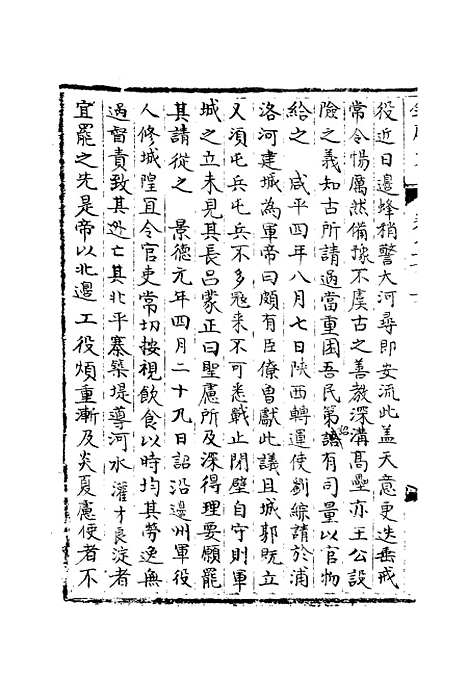 役近日邊蜂梢警大河尋即安流此盖天意更迭垂戒
常令惕厲然備據不虞古之善教深溝高壘亦王公設
險之義知古所請過當重困吾民第詔有司量以官物
給之　咸平四年八月七日陝西轉運使劉綜請於浦
洛河建城為軍帝曰頗有臣僚曾獻此議且城郭既立
又須屯兵屯兵不多冦来不可悉戰止閉壁自守則軍
城之立未見其長吕蒙正曰聖慮所及深得理要願罷
其請從之　景德元年四月二十九日詔沿邊州軍役
人修城隍且令官吏常切按視飲食以時均其勞逸無
過督責致其逃亡其北平寨築堤導河水灌才良淀者
宜罷之先是帝以北邊工役煩重漸及炎夏慮使者不